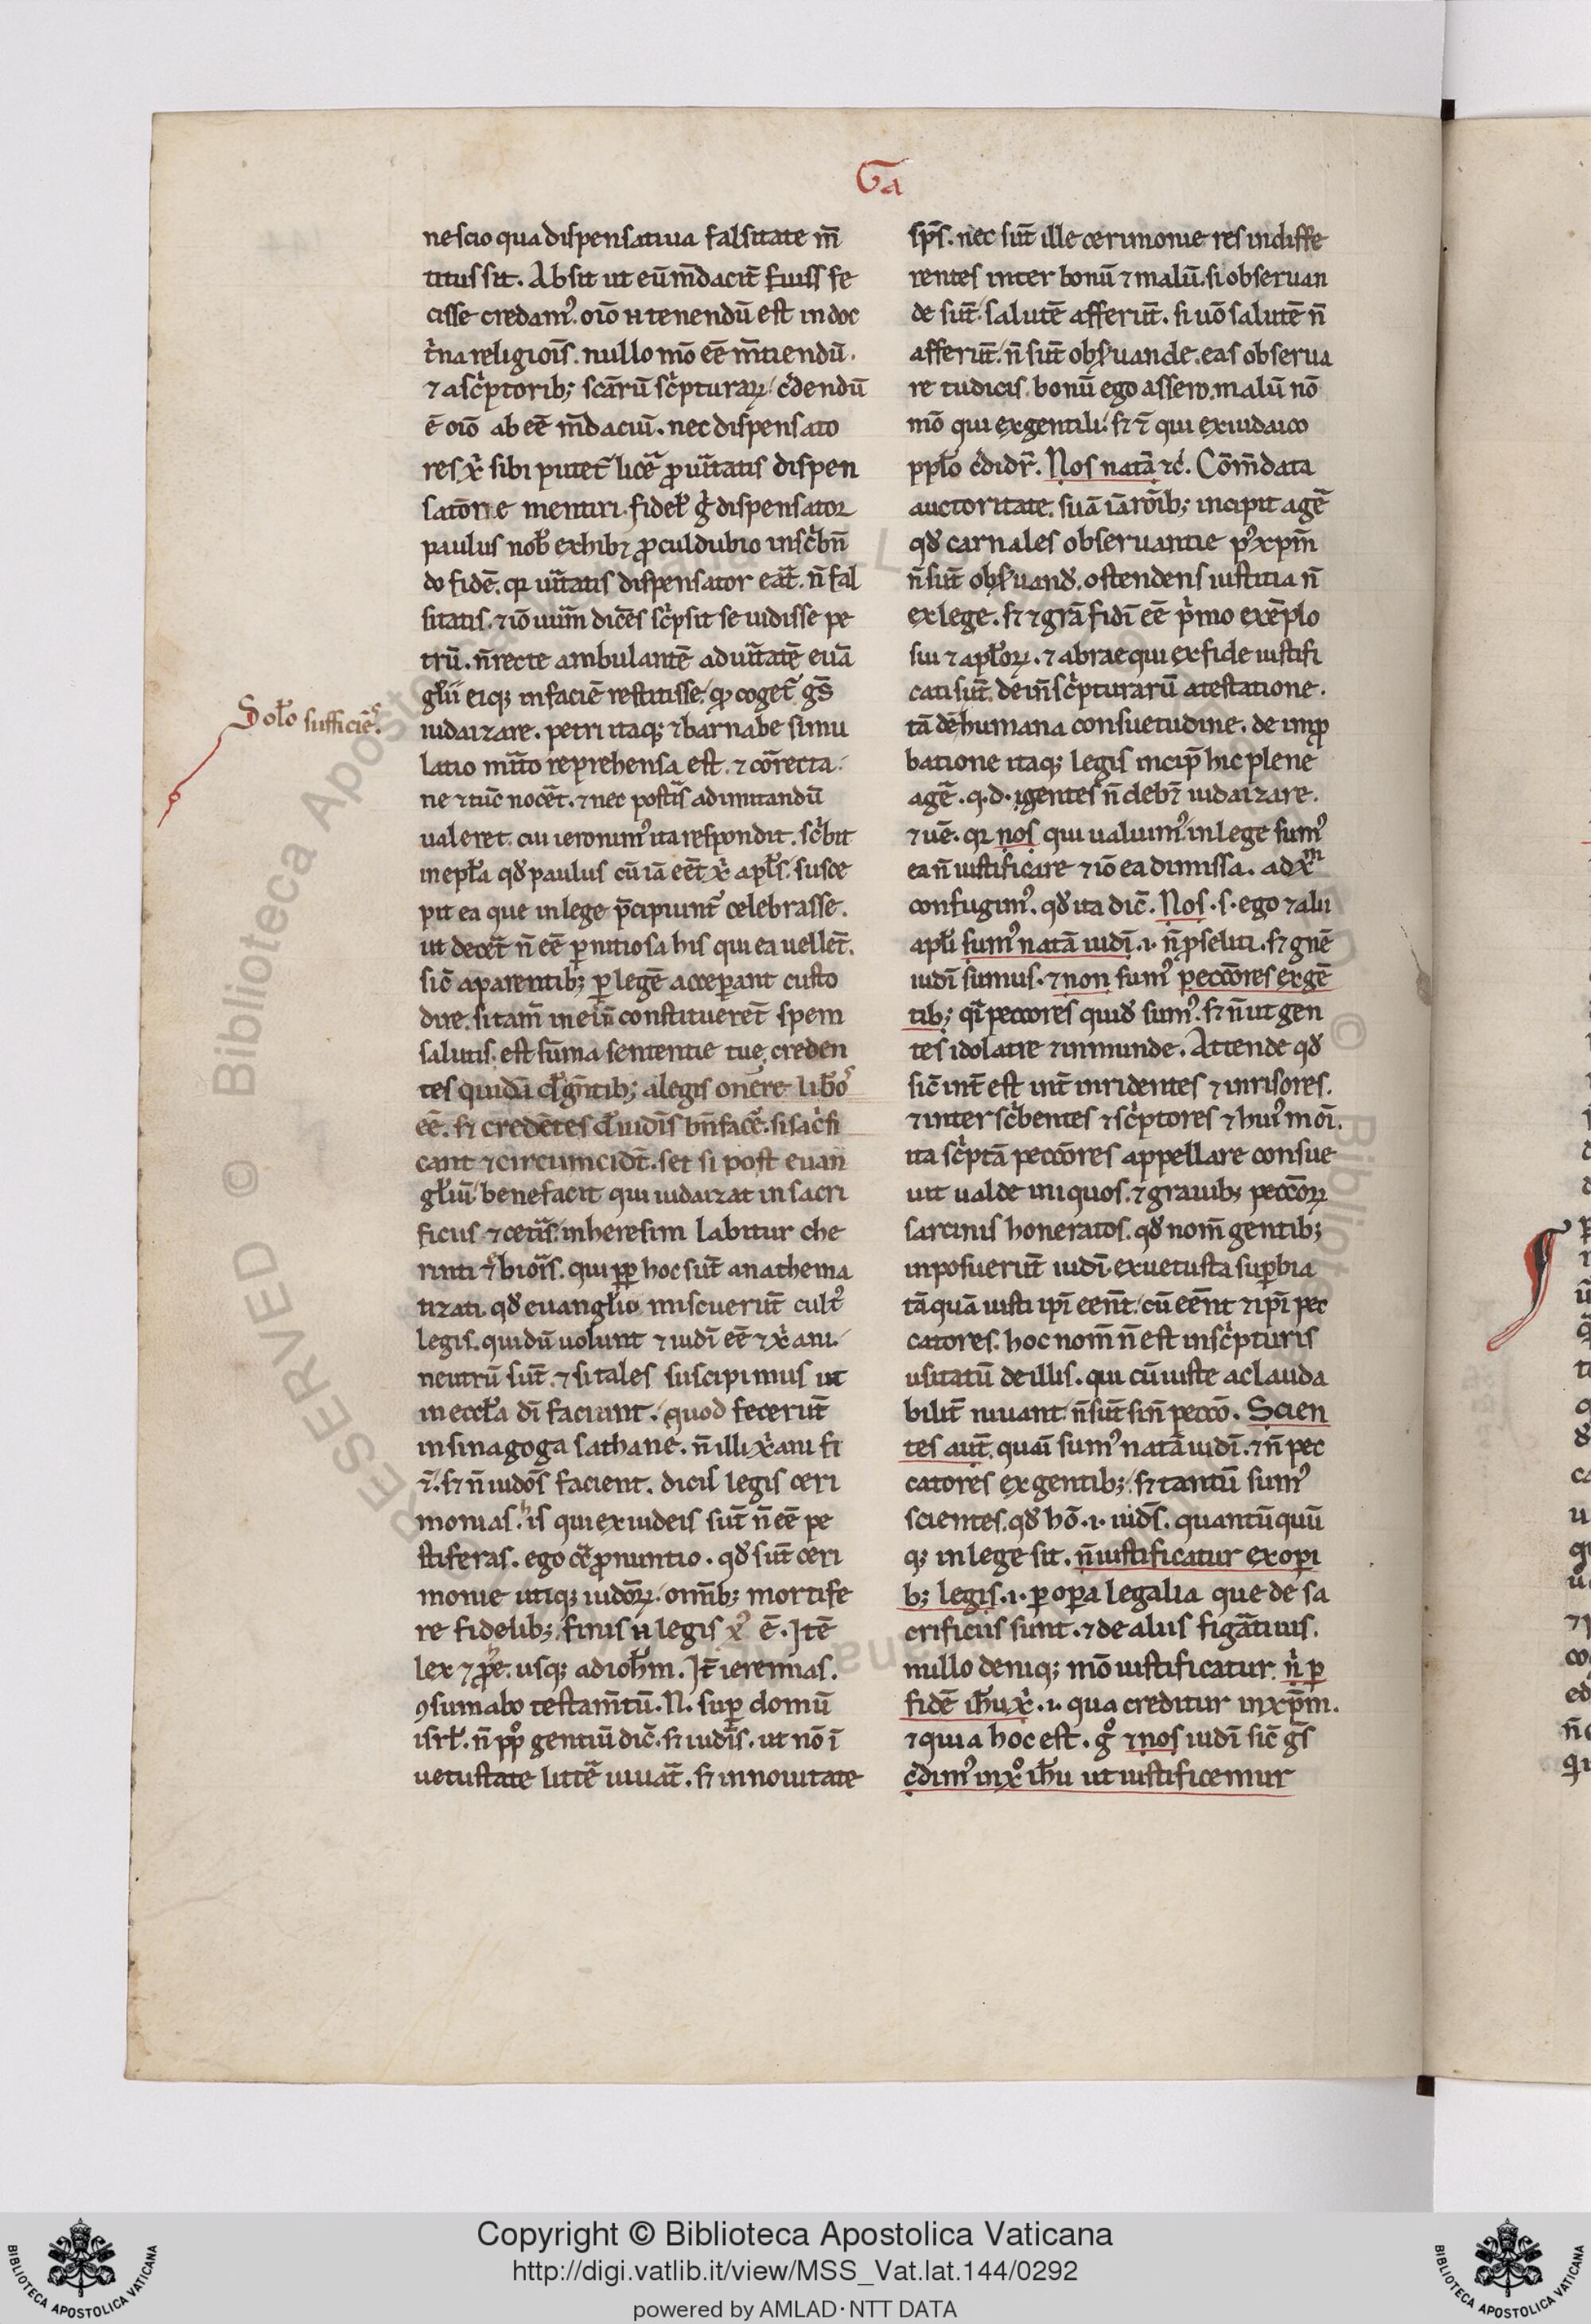 Ga
nescio qua dispensatiua falsitate m̄
titus sit. Absit ut eū m̄dacit̄ fuiss fe
cisse credam᾽. oīo n tenendū est in doc
t̾na religiois̄. nullo mō eē m̄tiendū.
⁊ a sc̾ptorib; scāꝝ sc̾pturaꝝ c̾dendū
ē oīo ab eē m̄daciū. nec dispensato
res x̾ sibi putet̄ licē ꝓ uītatis dispen
satorie mentiri. fidel̾ g̾ dispensator
paulus nob̾ exhib⁊ ꝓculdubio insc̾bn̄
do fidē. qꝛ uītatis dispensator eāt. n̄ fal
sitatis. ⁊ iō uūm dicēs sc̾psit se uidisse pe
trū. n̄ recte ambulantē ad uītatē euā
gl̄ii eiqꝫ in faciē restitisse. qꝫ coget̄ gs̄
iudaizare. petri itaqꝫ ⁊ barnabe simu
latio mīto reprehensa est. ⁊ cōrecta.
ne ⁊ tūc nocēt. ⁊ nec postīs ad imitandū
ualeret. cui ieronim᾽ ita respondit. sc̾bit
in epl̄a qđ paulus cū iā eēt x̾ apl̄s. susce
pit ea que in lege p̄cipiunt᾽ celebrasse.
ut decēt n̄ eē ꝑnitiosa his qui ea uellet̄.
sic̄ a parentib; ꝑ legē acceꝑant custo
dire. si tam̄ in ei n̄ constitueret̄ spem
salutis. est sūma sententie tue creden
tes quidā cl̾ gn̄tib; a legis onere lib̾os
eē. s⁊ credētes cl̾ iudis̄ bn̄ facē. si sac̾fi
cant ⁊ circumcidt̄. set si post euan
gl̄iū benefacit qui iudaizat in sacri
ficiis ⁊ cetīs. in heresim labitur che
rinti ⁊ ebiois̄. qui ꝓꝑ hoc sūt anathema
tizati. qđ euanglio miscuerūt cult᾽
legis. qui dū uolunt ⁊ iudī eē ⁊ x̾ani.
neutrū sūt. ⁊ si tales suscipimus ut
in eccl̄a dī faciant. quod fecerūt
in sinagoga sathane. n̄ illi x̾ani fi
t̄. s⁊ n̄ iudōs facient. dicis legis ceri
monias. is qui ex iudeis sūt n̄ eē pe
stiferas. ego cē ꝓnuntio. qđ sūt ceri
monie utiqꝫ iudōꝝ. omīb; mortife
re fidelib;. finis n legis x̾ ē. Itē
lex ⁊ ꝓe. usqꝫ ad ioh̄m. It̄ ieremias.
ꝯsumabo testam̄tū. N. suꝑ domū
isrl̄. n̄ pp̾ gentiū dic̄. s⁊ iudīs. ut nō ī
uetustate littē uiuāt. s⁊ in nouitate
Sol̄o sufficiēs.
sps̄. nec sūt ille cerimonie res indiffe
rentes inter bonū ⁊ malū. si obseruan
de sūt. salutē afferūt. si uō salutē n̄
afferūt. n̄ sūt obs̾uande. eas obserua
re tu dicis. bonū ego assero. malū nō
mō qui ex gentili. s⁊ ī qui ex iudaico
ppl̄o c̾didr̄. Nos natā ⁊c̾. Cōm̄data
auctoritate. suā iā rōib; incipit agē
qđ carnales obseruantie p᾽ xpm̄
n̄ sūt obs̾uanđ. ostendens iustitia n̄
ex lege. s⁊ ⁊ grā fidī eē p̾mo exēplo
sui ⁊ apl̄oꝝ. ⁊ abrae qui ex fide iustifi
cati sūt. dein̄ sc̾pturarū atestatione.
tā dē humana consuetudine. de imꝓ
batione itaqꝫ legis incip̄ hic plene
agē. q.d. igentes n̄ deb⁊ iudaizare.
⁊ uē. qꝛ nos qui ualuim᾽ in lege sum᾽
ea n̄ iustificare ⁊ iō ea dimissa. ad x̾m
confugim᾽. qđ ita dic̄. Nos .s. ego ⁊ alii
apl̄i sum᾽ natā iudī .i. n̄ ꝓseliti. s⁊ gnē
iudī sumus. ⁊ non sum᾽ peccōres ex gē
tib; qī peccores quiđ sum᾽. s⁊ n̄ ut gen
tes idolatre ⁊ inmunde. Attende qđ
sic̄ int̄ est int̄ inridentes ⁊ inrisores.
⁊ inter sc̾bentes ⁊ sc̾ptores ⁊ hui᾽moī.
ita sc̾ptā peccōres appellare consue
uit ualde iniquos. ⁊ grauib; peccōꝝ
sarcinis honeratos. qđ nom̄ gentib;
inposuerūt iudī ex uetusta suꝑbia
tāquā iusti ipī eēnt. cū eēnt ⁊ ipī pec
catores. hoc nom̄ n̄ est in sc̾pturis
usitatū de illis. qui cū iuste ac lauda
bilit̄ uiuant n̄ sūt sin̄ peccō. Scien
tes aut̄. quaī sum᾽ natā iudī. ⁊ n̄ pec
catores ex gentib;. s⁊ tantū sum᾽
scientes. qđ hō .i. iuds̄. quantūquū
qꝫ in lege sit. n̄ iustificatur ex opi
b; legis .i. ꝑ oꝑa legalia que de sa
crificiis sunt. ⁊ de aliis figātiuis.
nullo deniqꝫ mō iustificatur n̾ ꝑ
fidē ih̄u x̾ .i. qua creditur in xpm̄.
⁊ quia hoc est. g̊ ⁊ nos iudī sic̄ gs̄
c̾dim᾽ in x̊ ih̄u ut iustificemur
Copyright © Biblioteca Apostolica Vaticana
http://digi.vatlib.it/view/MSS_Vat.lat.144/0292
powered by AMLAD·NTT DATA